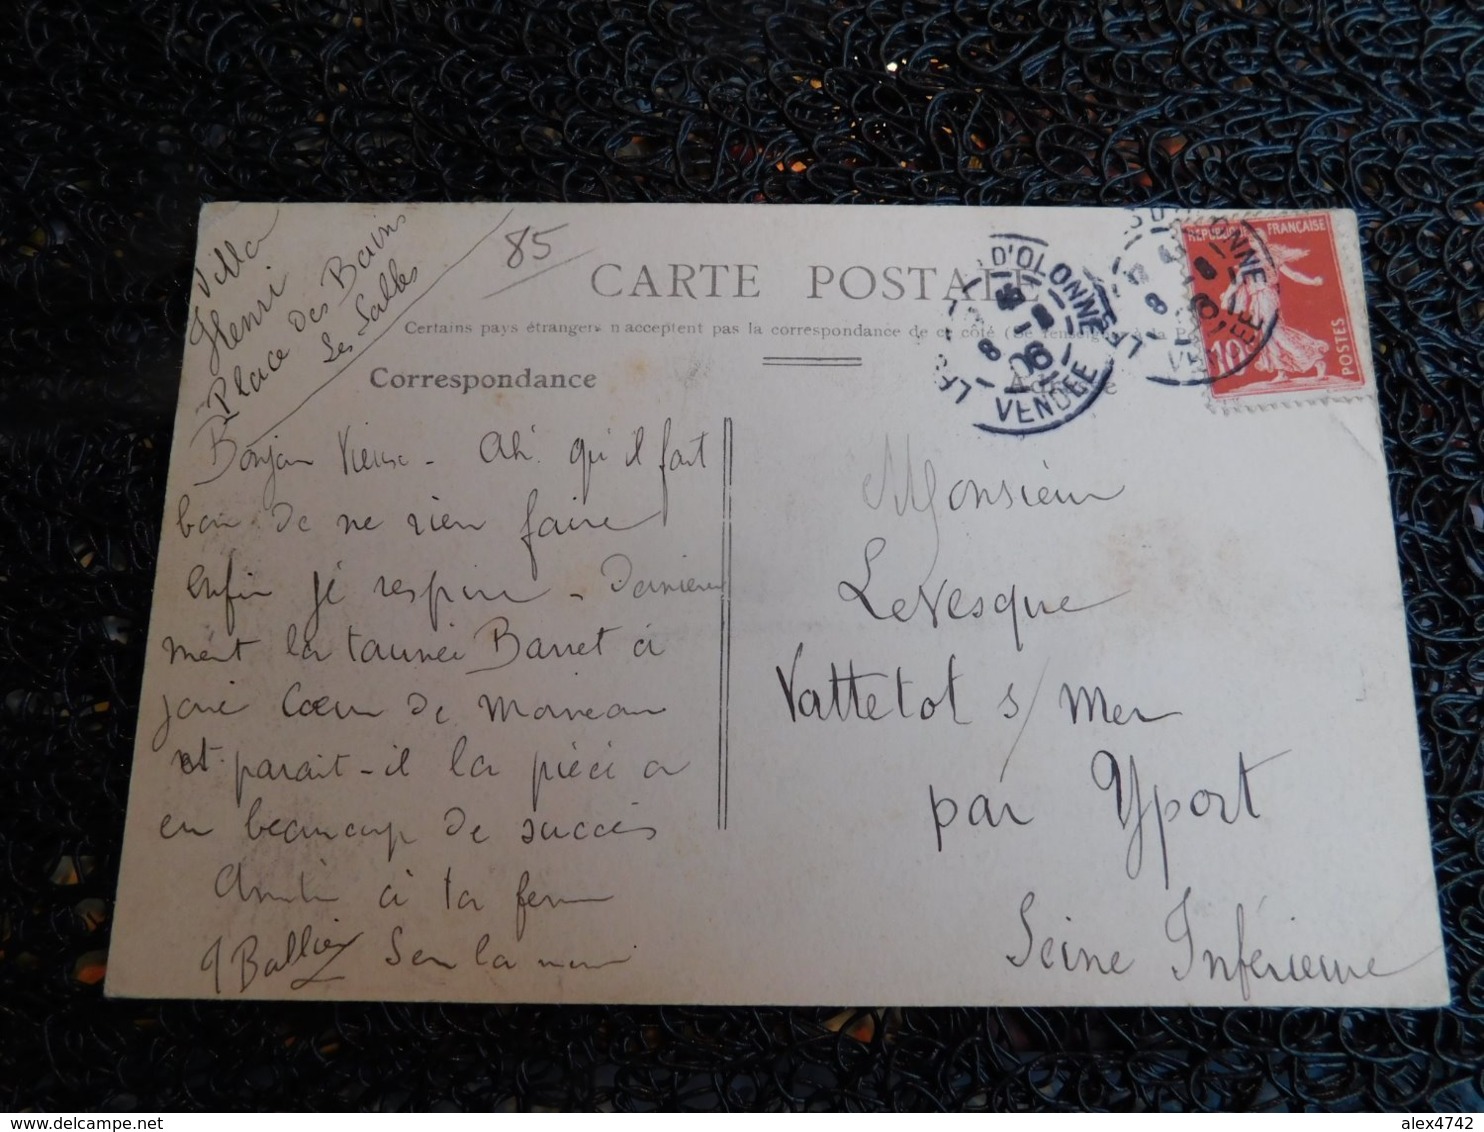 Villa
Henri
Place des Bains
Les Sables
85
CARTE POSTALE
Certains pays étrangers n'acceptent pas la correspondance de ce côté (Se renseigner à la P
Correspondance
Adresse
LES D'OLONNE
8 06
VENDEE
OLONNE
8
VENDEE
REPUBLIQUE FRANÇAISE
10
POSTES
Bonjour Vieux - Ah! qu'il fait
bon de ne rien faire
enfin je respire - Dernière
ment la tournée Barret a
joué Cœur de Moineau
et parait-il la pièce a
eu beaucoup de succès
Amitié à ta femme
Monsieur
LeVesque
Vattetot s/ Mer
par Yport
Seine Inférieure
alex4742